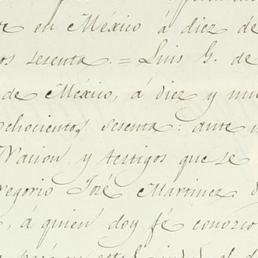 en México á diez de
os sesenta. = Luis G. de
de México, á diez y nu
ochocientos sesenta: ante
Nacion, y testigos que se
regorio José Martinez.
á quien doy fé conozco